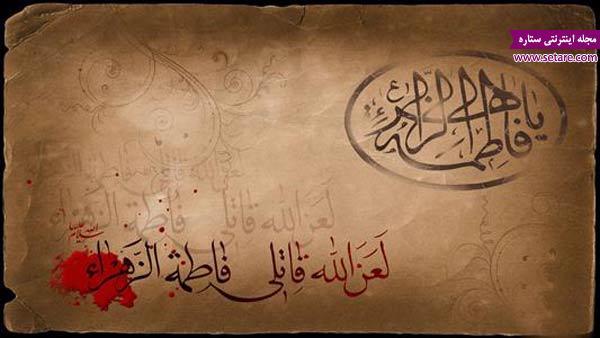 مجله اینترنتی ستاره
www.setare.com
یا فاطمة الزهراء
لعن الله قاتلی فاطمة الزهراء
لَعَنَ الله قاتِلی فاطمة الزَّهْراء
سلام الله علیها